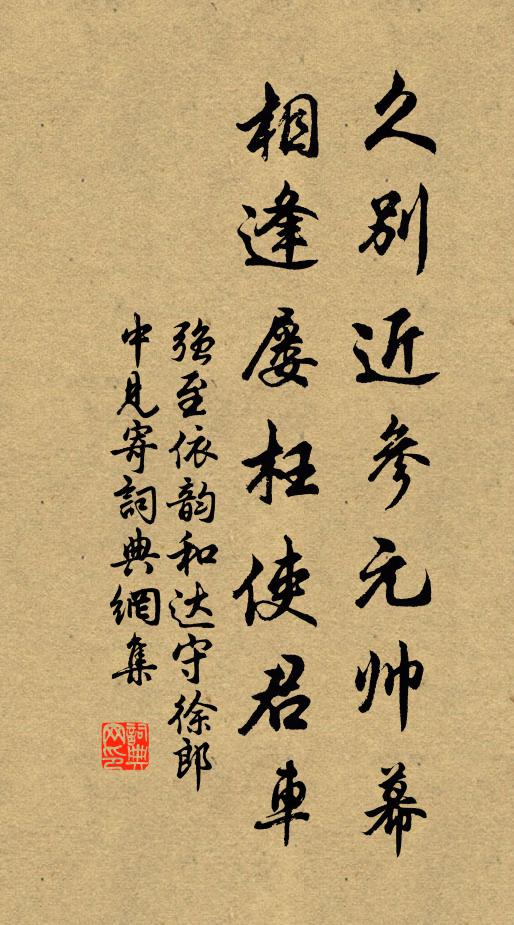 久别近參元帅幕
相逢屡枉使君車
強至依韵和达守徐郎
中見寄詞典網集
詞典网印